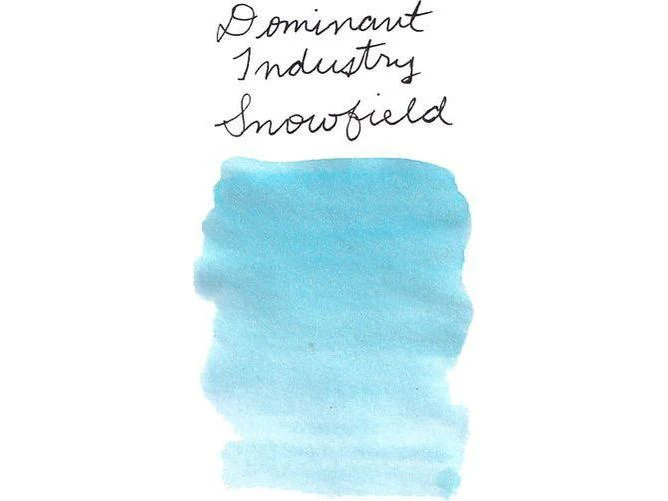 Dominant
Industry
Snowfield